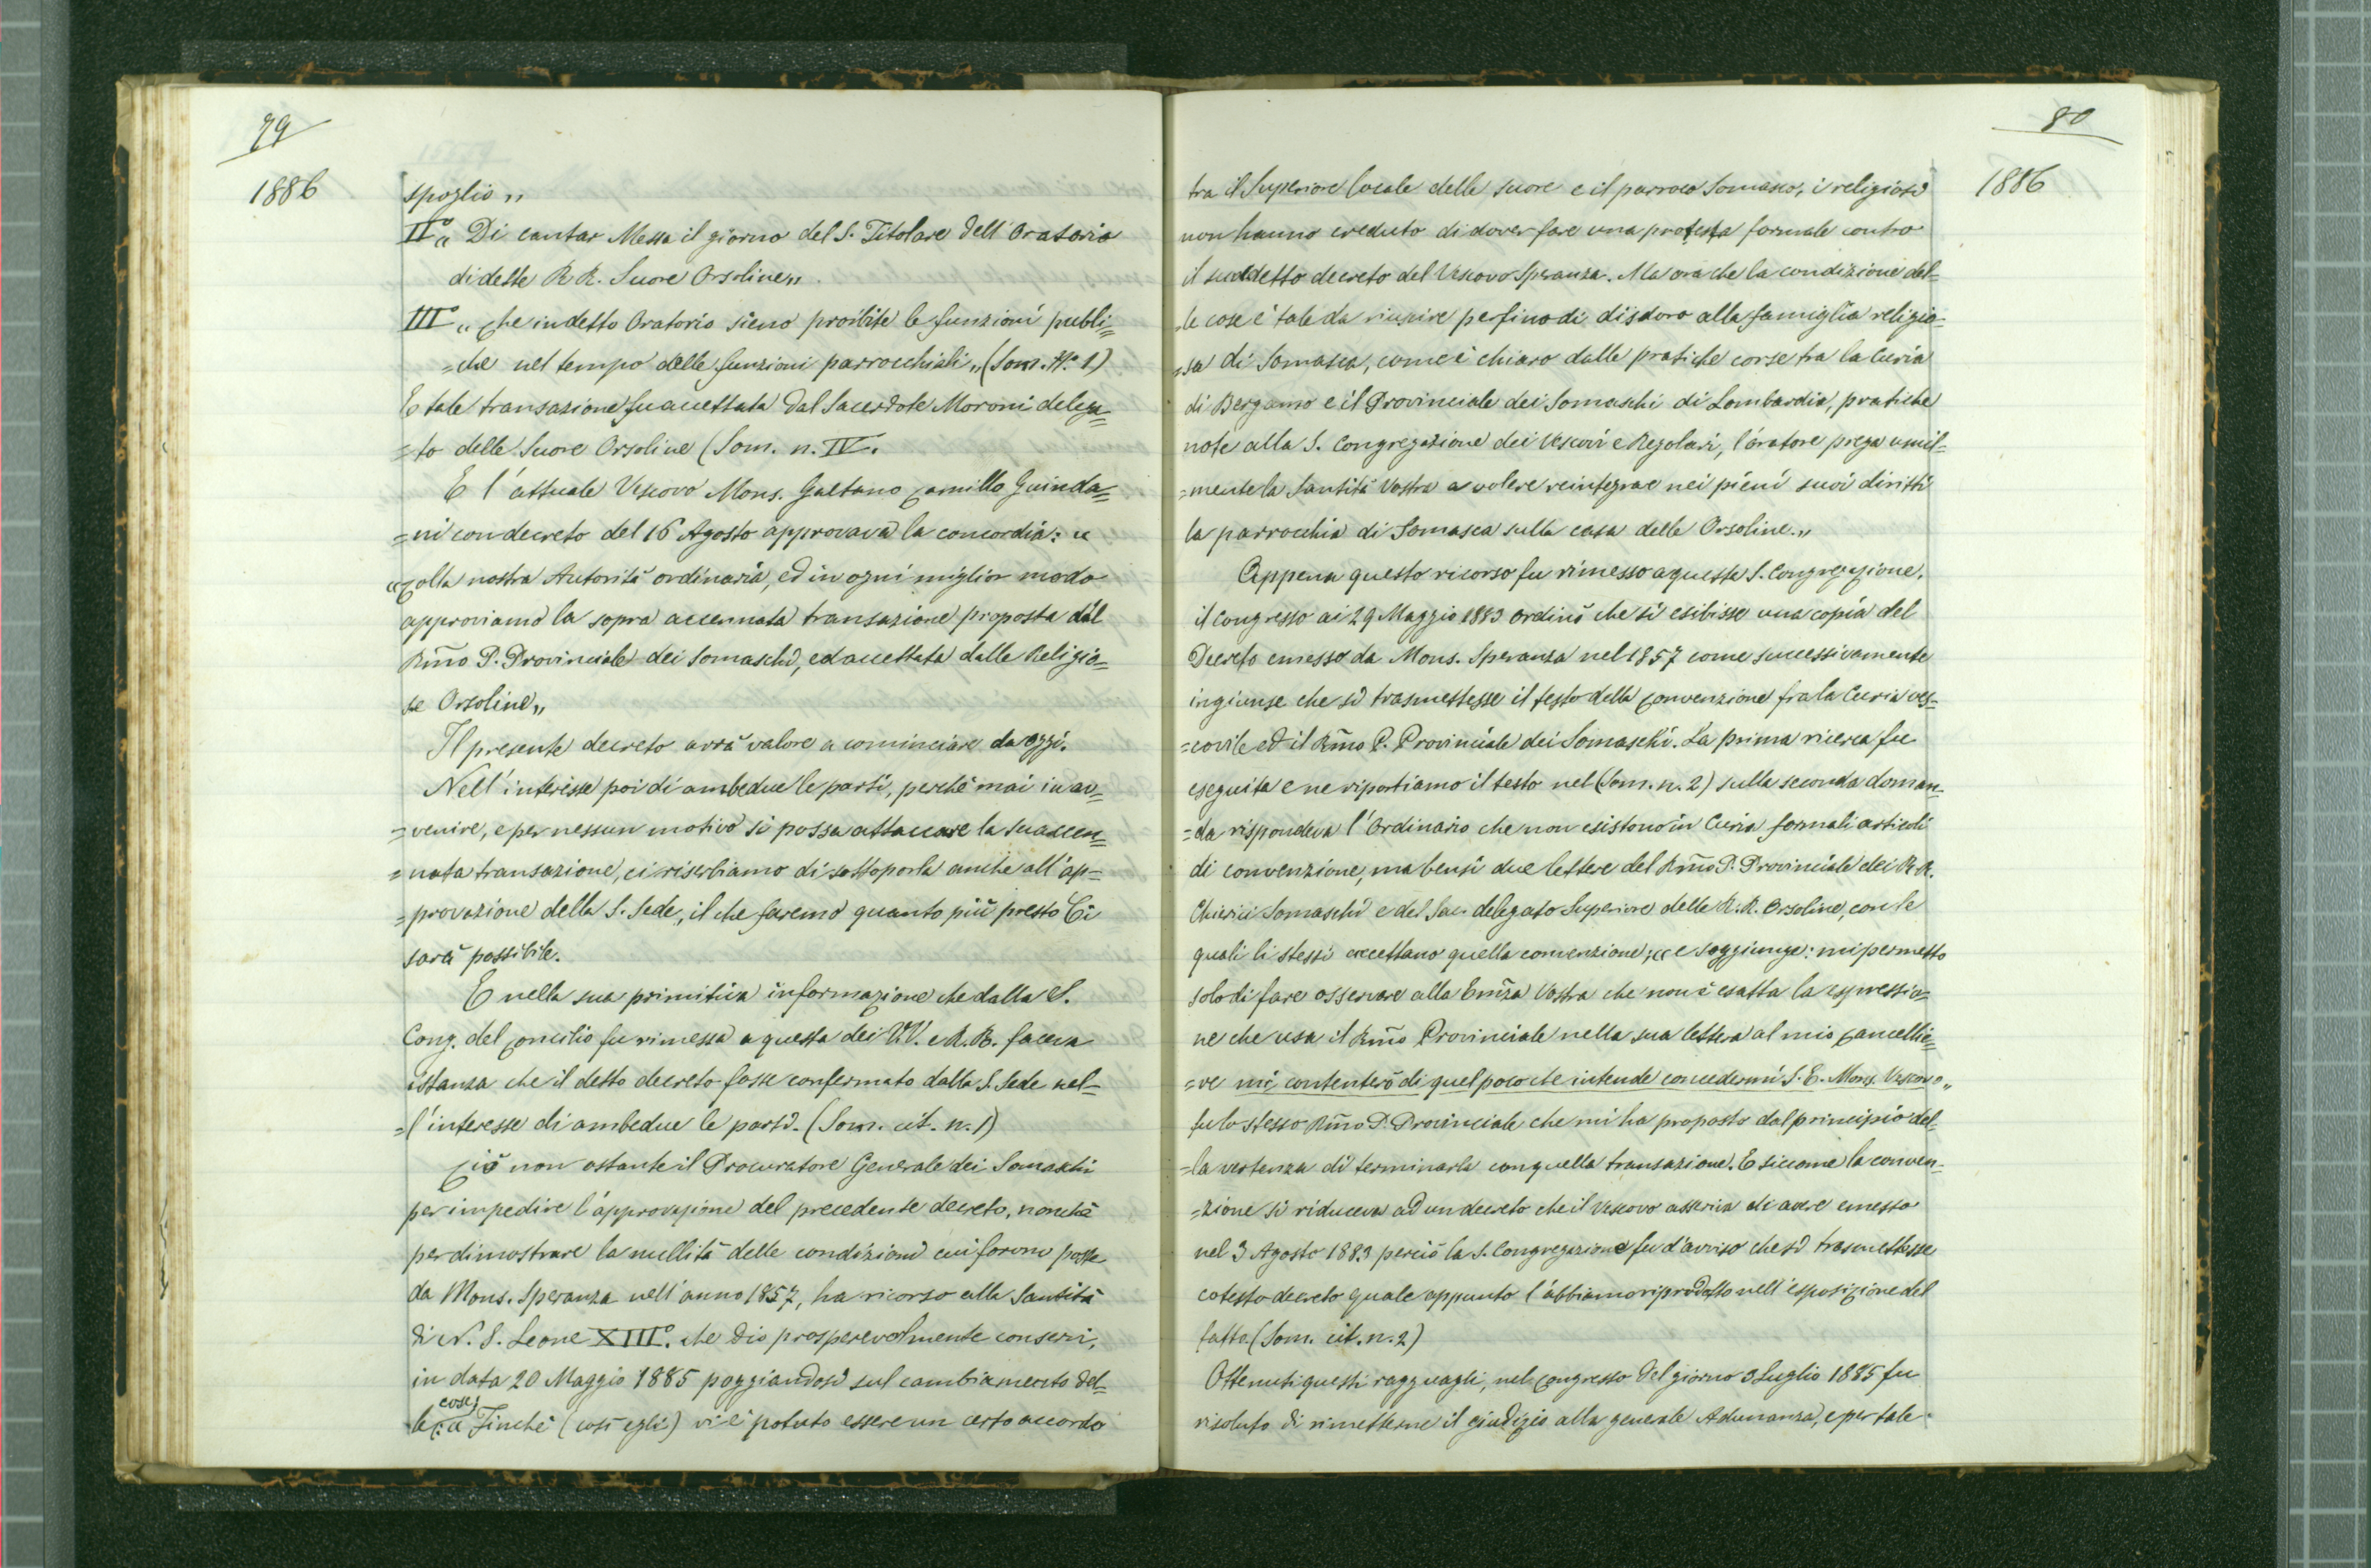 79
1886
spoglio „
II.° „ Di cantar Messa il giorno del S. Titolare dell'Oratorio
di dette R R. Suore Orsoline „
III° „ Che in detto Oratorio sieno proibite le funzioni pubbli=
=che nel tempo delle funzioni parrocchiali „ (Som. N.° 1)
E tale transazione fu accettata dal Sacerdote Moroni delega=
=to delle Suore Orsoline (Som. n. IV.
E l'attuale Vescovo Mons. Gaetano Camillo Guinda=
=ni con decreto del 16 Agosto approvava la concordia: „
„ Colla nostra Autorità ordinaria, ed in ogni miglior modo
approviamo la sopra accennata transazione proposta dal
Rm̃o P. Provinciale dei Somaschi, ed accettata dalle Religio=
se Orsoline „
Il presente decreto avrà valore a cominciare da oggi.
Nell'interesse poi di ambedue le parti, perchè mai in av=
=venire, e per nessun motivo si possa attaccare la suaccen=
=nata transazione, ci riserbiamo di sottoporla anche all'ap=
=provazione della S. Sede, il che faremo quanto più presto Ci
sarà possibile.
E nella sua primitiva informazione che dalla S.
Cong. del Concilio fu rimessa a questa dei VV. e R. R. faceva
istanza che il detto decreto fosse confermato dalla S. Sede nel=
=l'interesse di ambedue le parti. (Som. cit. n. 1)
Ciò non ostante il Procuratore Generale dei Somaschi
per impedire l'approvazione del precedente decreto, nonchè
per dimostrare la nullità delle condizioni cui furono poste
da Mons. Speranza nell'anno 1857, ha ricorso alla Santità
di N. S. Leone XIII°. che Dio prosperevolmente conservi,
in data 20 Maggio 1885 poggiandosi sul cambiamento del=
cose
le: „ Finchè (così egli) vi è potuto essere un certo accordo
80
1886
tra il Superiore locale delle suore e il parroco Somasco, i religiosi
non hanno creduto di dover fare una protesta formale contro
il suddetto decreto del Vescovo Speranza. Ma ora che la condizione del=
le cose è tale da riuscire perfino di disdoro alla famiglia religio=
=sa di Somasca, come è chiaro dalle pratiche corse tra la Curia
di Bergamo e il Provinciale dei Somaschi di Lombardia, pratiche
note alla S. Congregazione dei Vescovi e Regolari, l'oratore prega umil=
=mente la Santità Vostra a volere reintegrare nei pieni suoi diritti
la parrocchia di Somasca sulla casa delle Orsoline. „
Appena questo ricorso fu rimesso a questa S. Congregazione,
il Congresso ai 29 Maggio 1883 ordinò che si esibisse una copia del
Decreto emesso da Mons. Speranza nel 1857 come successivamente
ingiunse che si trasmettesse il testo della Convenzione fra la Curia ves=
=covile ed il Rm̃o P. Provinciale dei Somaschi. La prima ricerca fu
eseguita e ne riportiamo il testo nel (Som. n. 2) sulla seconda doman=
=da rispondeva l'Ordinario che non esistono in Curia formali articoli
di convenzione, ma bensì due lettere del Rm̃o P. Provinciale dei R. R.
Chierici Somaschi e del Sac. delegato Superiore delle R. R. Orsoline, con le
quali li stessi accettano quella convenzione; „ e soggiunge: mi permetto
solo di fare osservare alla Em̃za Vostra che non è esatta la espressio=
ne che usa il Rm̃o Provinciale nella sua lettera al mio Cancellie=
=re mi contenterò di quel poco che intende concedermi S. E. Mons. Vescovo „
fu lo stesso Rm̃o P. Provinciale che mi ha proposto dal principio del=
=la vertenza di terminarla con quella transazione. E siccome la conven=
=zione si riduceva ad un decreto che il Vescovo asseriva di avere emesso
nel 3 Agosto 1883 perciò la S. Congregazione fu d'avviso che si trasmettesse
cotesto decreto quale appunto l'abbiamo riprodotto nell'esposizione del
fatto. (Som. cit. n. 2)
Ottenuti questi ragguagli, nel Congresso del giorno 3 Luglio 1885 fu
risoluto di rimetterne il giudizio alla generale Adunanza, e per tale